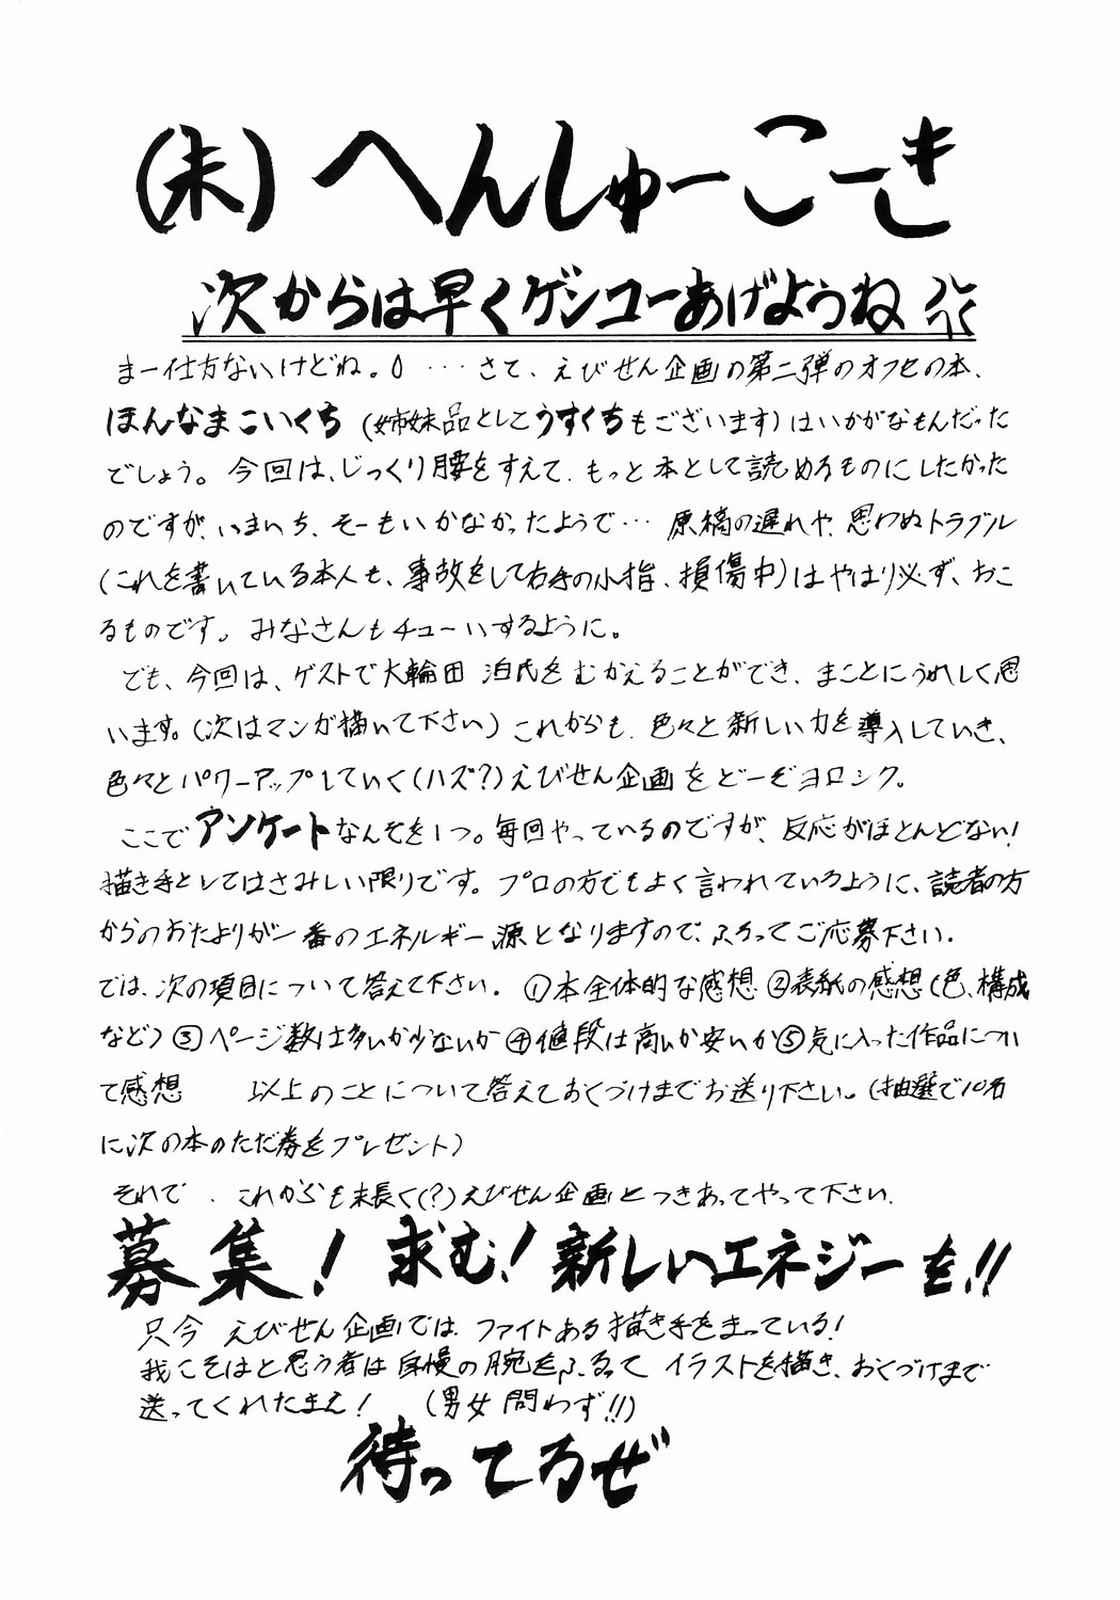 (末)へんしゅーこーき
次からは早くゲンコーあげようね
まー仕方ないけどね。 … さて、えびせん企画の第二弾のオフセの本、
ほんなまこいくち (姉妹品としてうすくちもございます)はいかがなもんだった
でしょう。今回は、じっくり腰をすえて、もっと本として読めるものにしたかった
のですが、いまいち、そーもいかなかったようで… 原稿の遅れや、思わぬトラブル
(これを書いている本人も、事故をして右手の小指、損傷中)はやはり必ず、おこ
るものです。みなさんもチューいするように。
でも、今回は、ゲストで大輪田 泊氏をむかえることができ、まことにうれしく思
います。(次はマンガ描いて下さい) これからも、色々と新しい力を導入していき、
色々とパワーアップしていく(ハズ?)えびせん企画をどーぞヨロシク。
ここでアンケートなんぞを1つ。毎回やっているのですが、反応がほとんどない!
描き手としてはさみしい限りです。プロの方でもよく言われているように、読者の方
からのおたよりが一番のエネルギー源となりますので、ふるってご応募下さい.
では、次の項目について答えて下さい. ①本全体的な感想 ②表紙の感想(色、構成
など) ③ページ数は多いか少ないか ④値段は高いか安いか ⑤気に入った作品につい
て感想 以上のことについて答えておくづけまでお送り下さい。(抽選で10名
に次の本のただ券をプレゼント)
それで、これからも末長く(?)えびせん企画とつきあってやって下さい.
募集! 求む! 新しいエネジーを!!
只今 えびせん企画では、ファイトある描き手をまっている!
我こそはと思う者は自慢の腕をふるって イラストを描き、おくづけまで
送ってくれたまえ! (男女問わず!!)
待ってるぜ